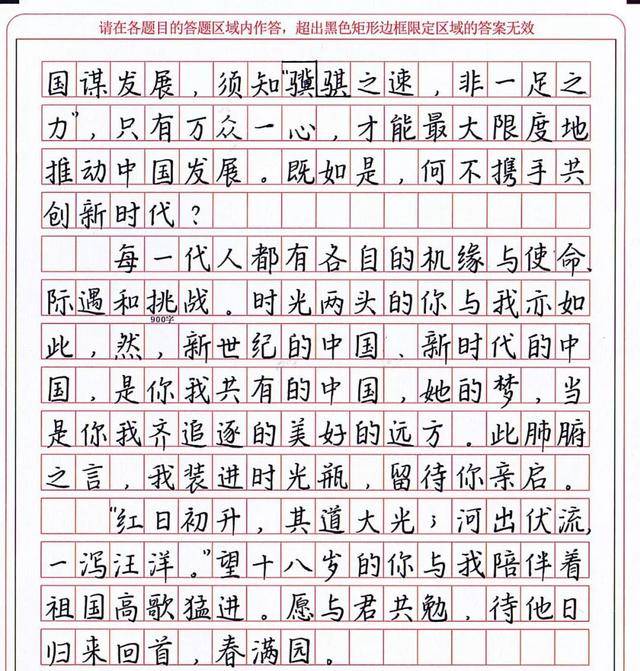 请在各题目的答题区域内作答，超出黑色矩形边框限定区域的答案无效
国谋发展，须知“骥骐之速，非一足之
力”，只有万众一心，才能最大限度地
推动中国发展。既如是，何不携手共
创新时代？
每一代人都有各自的机缘与使命、
际遇和挑战。时光两头的你与我亦如
900字
此，然，新世纪的中国、新时代的中
国，是你我共有的中国，她的梦，当
是你我齐追逐的美好的远方。此肺腑
之言，我装进时光瓶，留待你亲启。
“红日初升，其道大光；河出伏流，
一泻汪洋。”望十八岁的你与我陪伴着
祖国高歌猛进。愿与君共勉，待他日
归来回首，春满园。